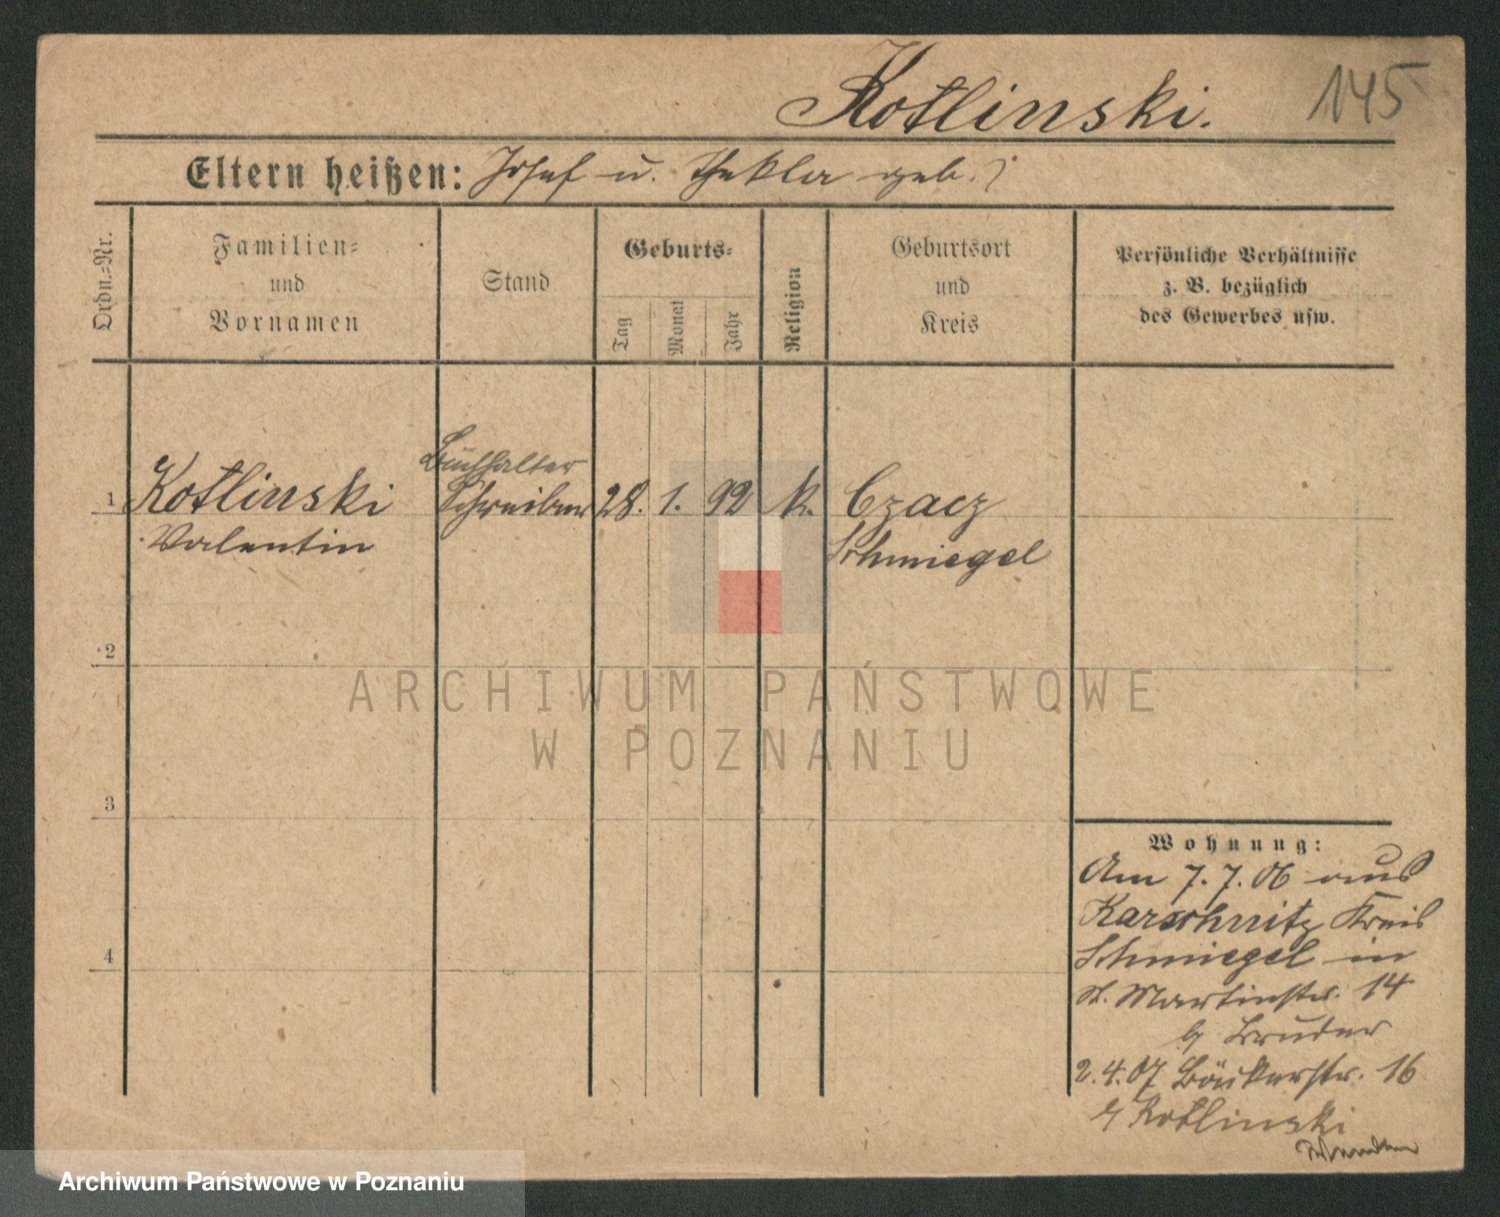 Kotlinski.
145
Eltern heißen: Josef u. Thekla geb. ?
Ordn.-Nr.
Familien-
und
Vornamen
Stand
Geburts-
Tag
Monat
Jahr
Religion
Geburtsort
und
Kreis
Persönliche Verhältnisse
z. B. bezüglich
des Gewerbes usw.
Buchhalter
1 Kotlinski Schreiber 28. 1. 92 k. Czacz
Valentin Schmiegel
2
3
4
Wohnung:
Am 7. 7. 06 aus
Karschnitz Kreis
Schmiegel in
St. Martinstr. 14
b/ Bruder
2.4.07 Bäckerstr. 16
b/ Kotlinski
ARCHIWUM PAŃSTWOWE
W POZNANIU
Archiwum Państwowe w Poznaniu